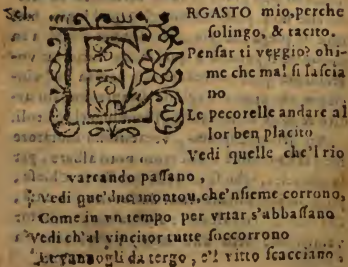 Sel.
ERGASTO mio, perche
solingo, & tacito.
Penſar ti veggio? ohi-
me che mal ſi laſcia
no
Le pecorelle andare al
lor ben placito
Vedi quelle che'l rio
varcando paſſano,
Vedi que'duo montou, che'nſieme corrono,
Come in vn tempo per vrtar s'abbaſſano
Vedi ch'al vincitor tutte ſoccorrono
Et vannogli da tergo, e'l vitto ſcacciano,